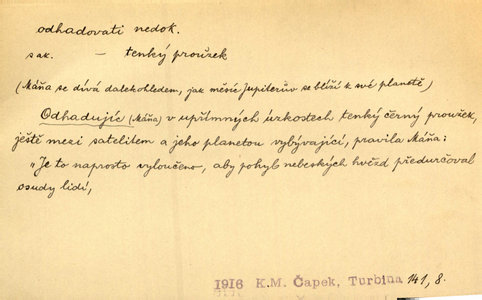 odhadovati nedok.
s ak. — tenký proužek
(Máňa se dívá dalekohledem, jak měsíc Jupiterův se blíží k své planetě)
Odhadujíc (Máňa) v upřímných úzkostech tenký černý proužek,
ještě mezi satelitem a jeho planetou vybývající, pravila Máňa:
„Je to naprosto vyloučeno, aby pohyb nebeských hvězd předurčoval
osudy lidí,
1916 K.M. Čapek, Turbina 141, 8.